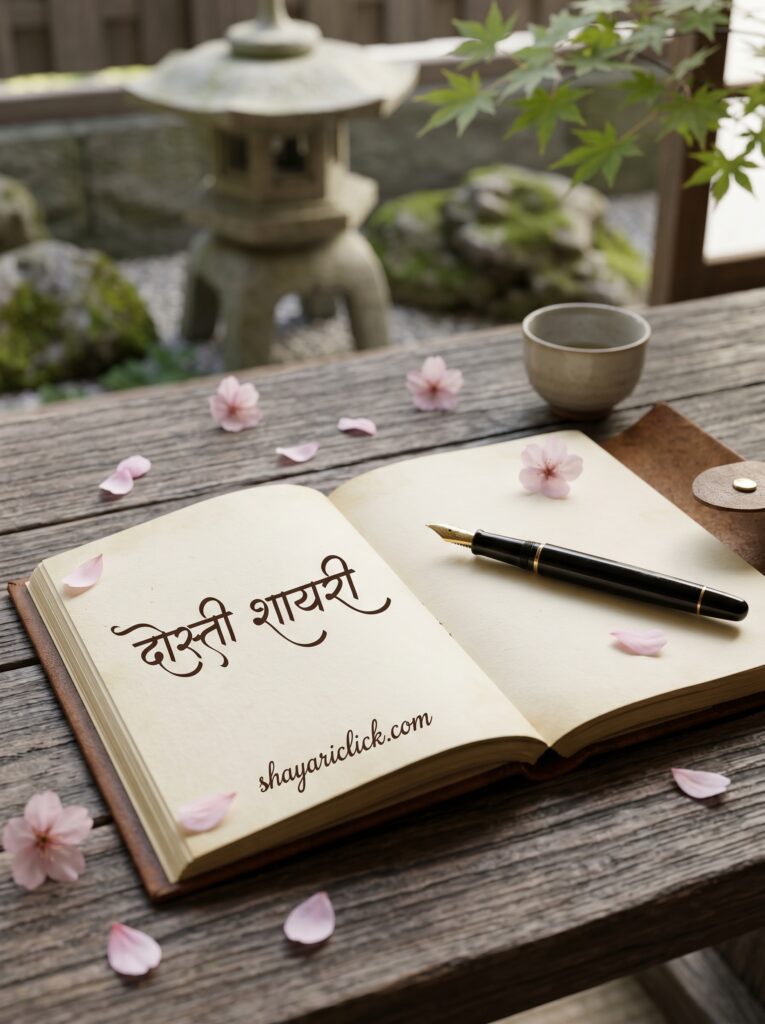 दोस्ती शायरी
shayariclick.com